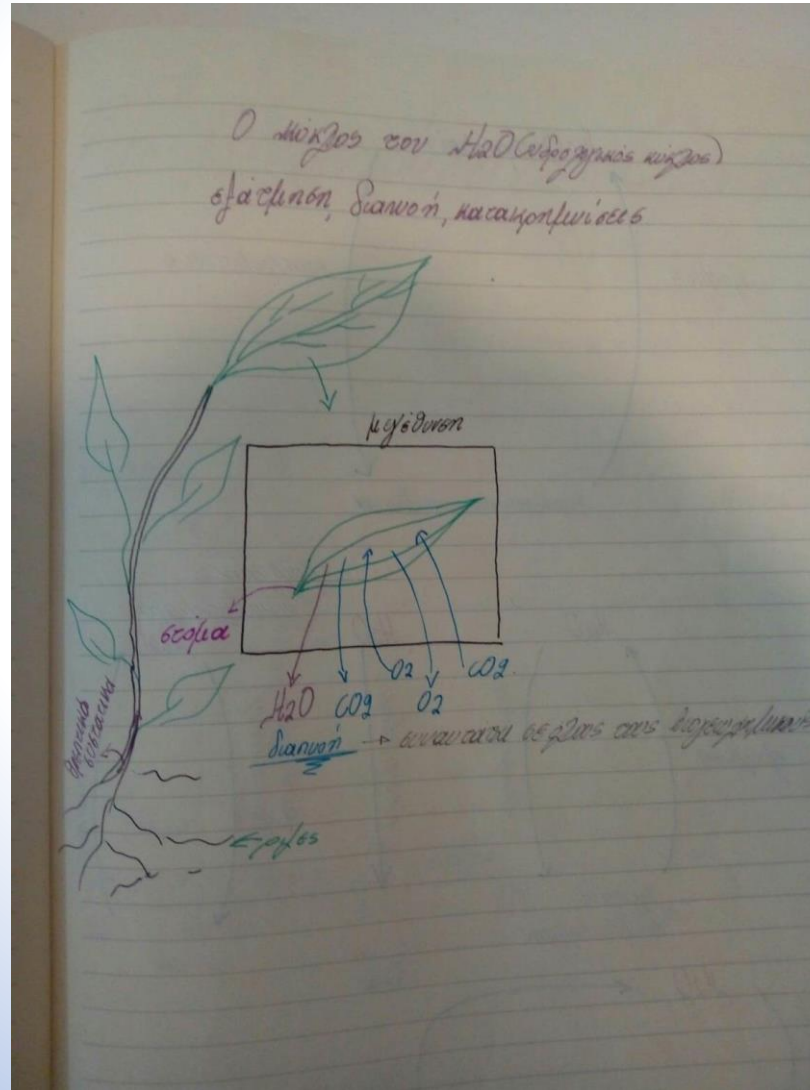 Ο κύκλος του H2O (υδρολογικός κύκλος)
εξάτμιση, διαπνοή, κατακρημνίσεις
μεγέθυνση
στόμα
O2 CO2
H2O CO2 O2
διαπνοή → συναντάται σε όλους τους βιογεωχημικούς
θρεπτικά
συστατικά
ρίζες